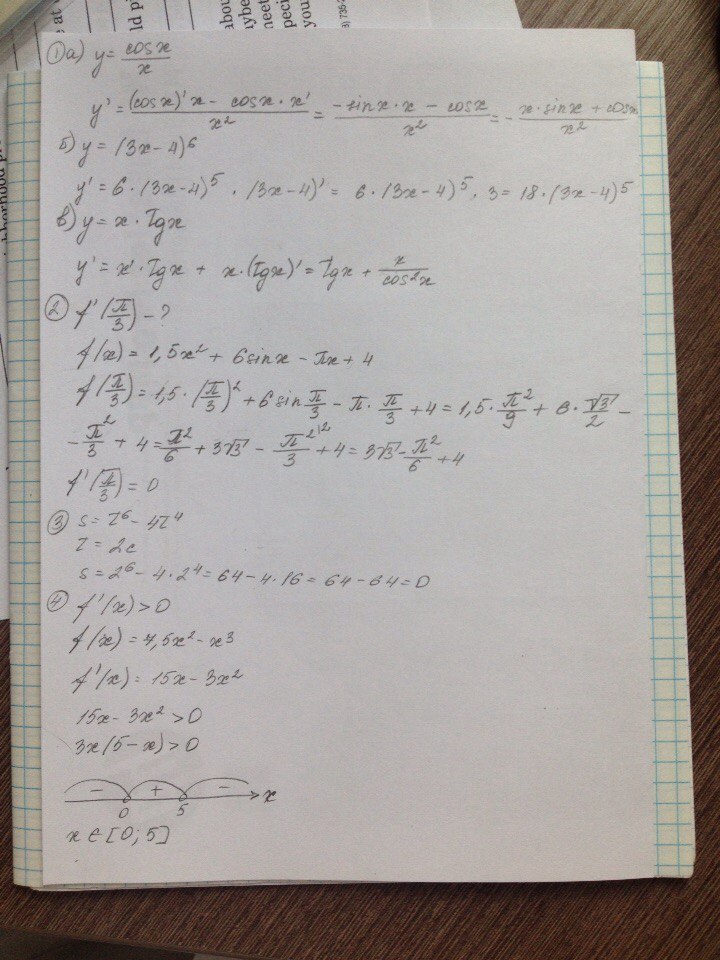 ① а) y = cosx/x
y' = ((cosx)'x - cosx · x')/x² = (-sinx · x - cosx)/x² = - (x·sinx + cosx)/x²
б) y = (3x-4)⁶
y' = 6·(3x-4)⁵ · (3x-4)' = 6·(3x-4)⁵ · 3 = 18·(3x-4)⁵
в) y = x · tgx
y' = x' · tgx + x·(tgx)' = tgx + x/cos²x
② f'(π/3) - ?
f(x) = 1,5x² + 6sinx - πx + 4
f(π/3) = 1,5 · (π/3)² + 6sin π/3 - π · π/3 + 4 = 1,5 · π²/9 + 6 · √3/2 -
- π²/3 + 4 = π²/6 + 3√3 - π²\2/3 + 4 = 3√3 - π²/6 + 4
f'(π/3) = 0
③ s = t⁶ - 4t⁴
t = 2c
s = 2⁶ - 4 · 2⁴ = 64 - 4 · 16 = 64 - 64 = 0
④ f'(x) > 0
f(x) = 7,5x² - x³
f'(x) = 15x - 3x²
15x - 3x² > 0
3x(5 - x) > 0
- + - x
0 5
x ∈ [0; 5]